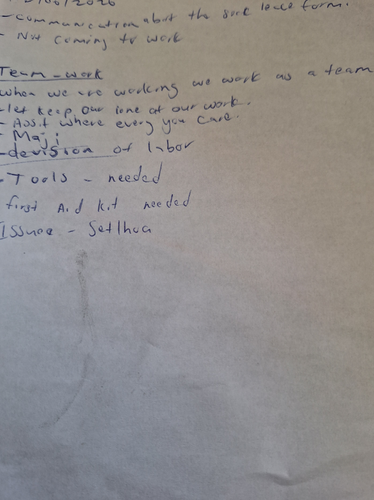 - Communication about the sick leave form.
- Not coming to work
Team-work
when we are working we work as a team
- let keep our lane at our work.
- Assit where every you care.
- Maji
- devision of labor
- Tools - needed
first Aid kit needed
ISSuee - Setlhoa